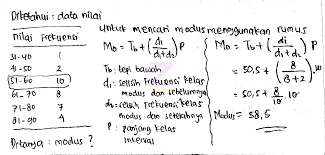 Diketahui : data nilai
nilai Frekuensi
31-40 1
41-50 2
51-60 10
61-70 8
71-80 7
81-90 4
Ditanya : modus ?
Untuk mencari modus menggunakan rumus
Mo = Tb + (d1 / d1 + d2) P
Tb : tepi bawah
d1 : selisih frekuensi kelas
modus dan sebelumnya
d2 : selisih frekuensi kelas
modus dan setelahnya
P : panjang kelas
interval
Mo = Tb + (d1 / d1 + d2) P
= 50,5 + (8 / 8 + 2) . 10
= 50,5 + 8 / 10 . 10
Modus = 58,5